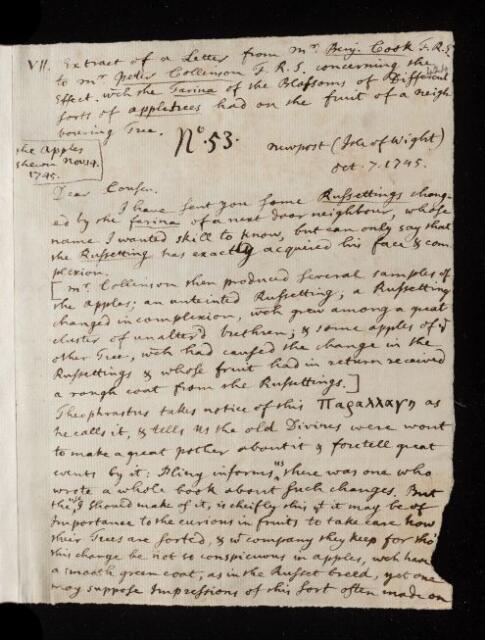 VII. Extract of a Letter from Mr. Benj. Cook F.R.S.
to Mr. Peter Collenson F.R.S. concerning the
Effect wch the Farina of the Blossoms of Different
sorts of appletrees had on the fruit of a neigh
bouring Tree.
No. 53.
the apples
shewn Nov. 14.
1745.
Newport (Isle of Wight)
Oct. 7. 1745.
Dear Cousen.
I have sent you some Russettings chang-
ed by the farina of a next door neighbour, whose
name I wanted skill to know, but can only say that
the Russetting has exactly acquired his face & com
plexion.
[Mr. Collenson then produced several samples of
the apples; an untainted Russetting; a Russetting
changed in complexion, wch grew among a great
cluster of unalter'd brethren; & some apples of ye
other Tree, wch had caused the change in the
Russettings & whose fruit had in return received
a rough coat from the Russettings.]
Theophrastus takes notice of this Παραλλαγη as
he calls it, & tells us the old Divines were wont
to make a great pother about it & foretell great
events by it: Pliny informs us there was one who
wrote a whole book about such changes. But
the use I should make of it, is cheifly this yt it may be of
Importance to the curious in fruits to take care how
their Trees are sorted, & wt company they keep for tho'
this change be not so conspicuous in apples, wch have
a smooth green coat, as in the Russet breed, yet one
may suppose Impressions of this sort often made on